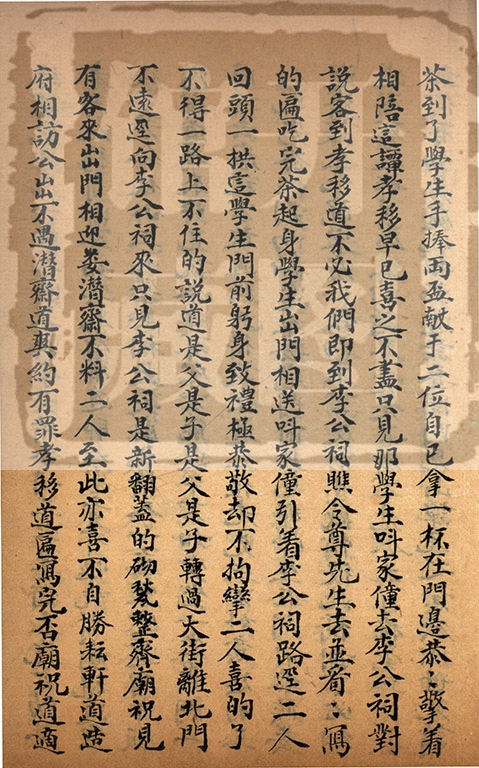 茶到了學生手捧兩盃献于二位自已拿一杯在門邊恭〻擎着
相陪這譚孝移早已喜之不盡只見那學生呌家僮去李公祠對
説客到孝移道不必我們即到李公祠瞧令尊先生去並看〻寫
的匾吃完茶起身學生出門相送呌家僮引着李公祠路逕二人
回頭一拱這學生門前躬身致禮極恭敬却不拘攣二人喜的了
不得一路上不住的説道是父是子是父是子轉過大街離北門
不遠逕向李公祠來只見李公祠是新翻蓋的砌甃整齊廟祝見
有客來出門相迎婁潛齋不料二人至此亦喜不自勝耘軒道造
府相訪公出不遇潛齋道爽約有罪孝移道匾寫完否廟祝道適